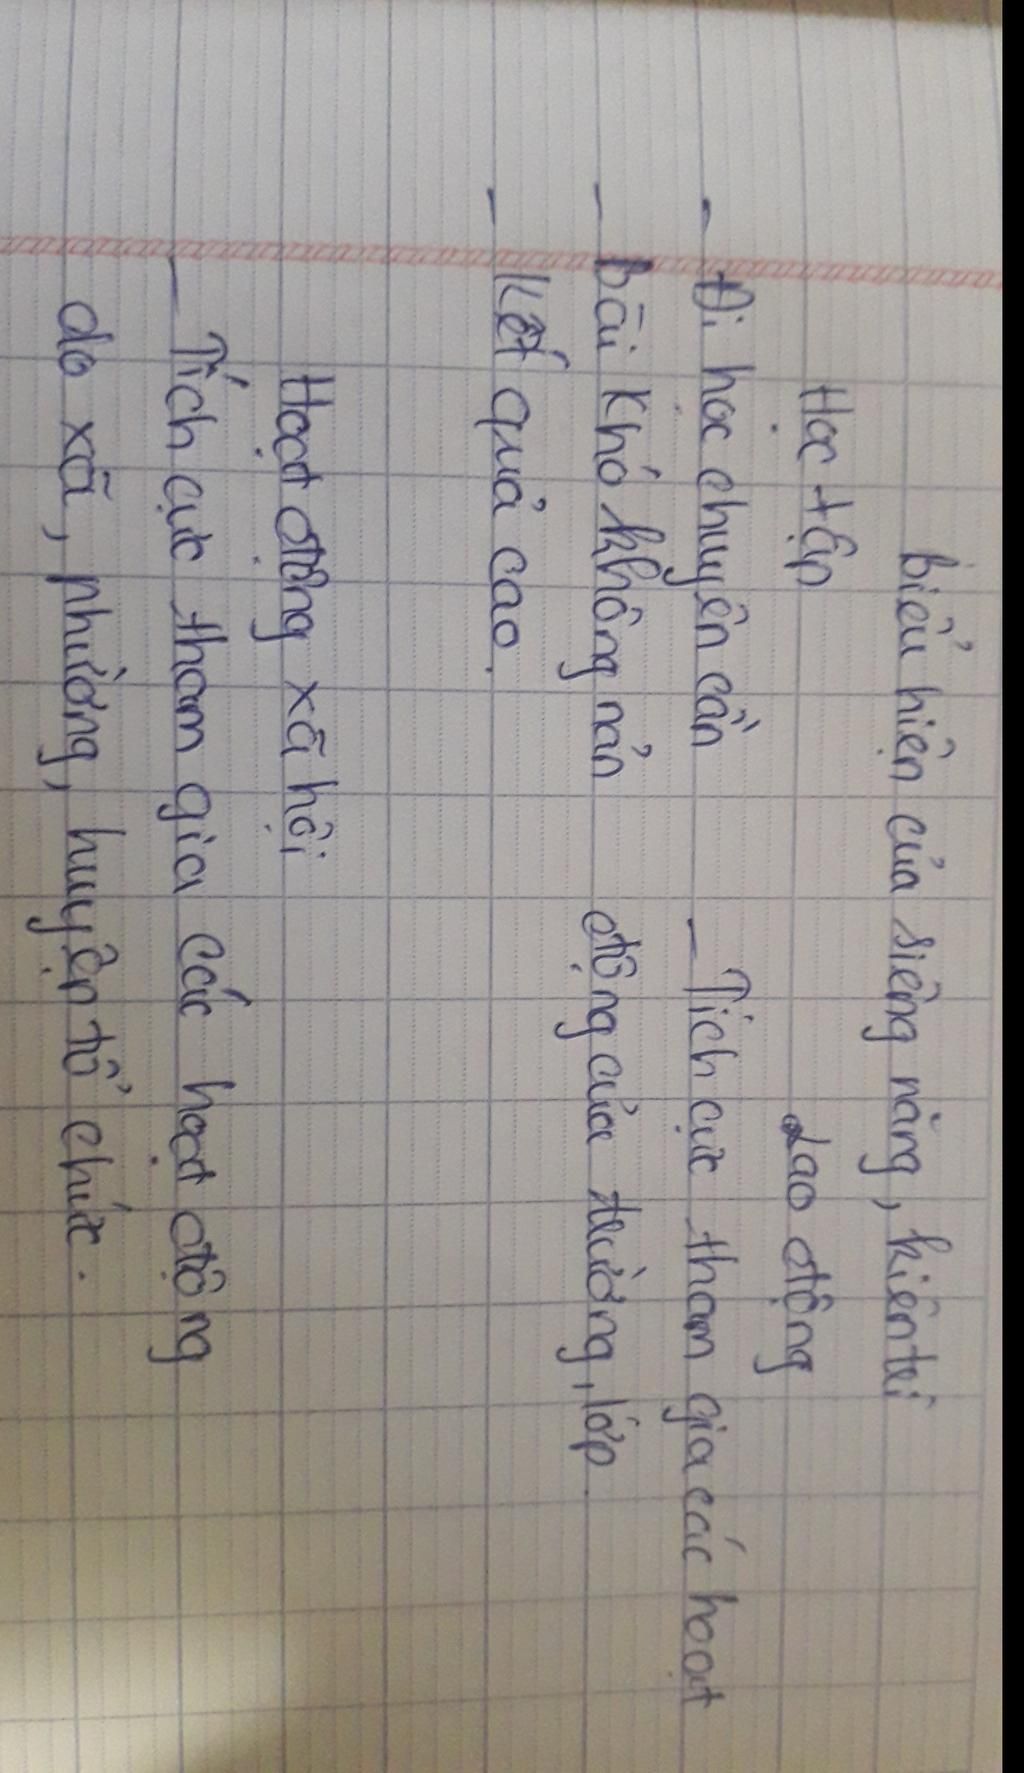 biểu hiện của siêng năng, kiên trì
Học tập
Lao động
- Đi học chuyên cần
- Tích cực tham gia các hoạt
- bài khó không nản
động của trường, lớp.
- Kết quả cao.
Hoạt động xã hội
- Tích cực tham gia các hoạt động
do xã, phường, huyện tổ chức.